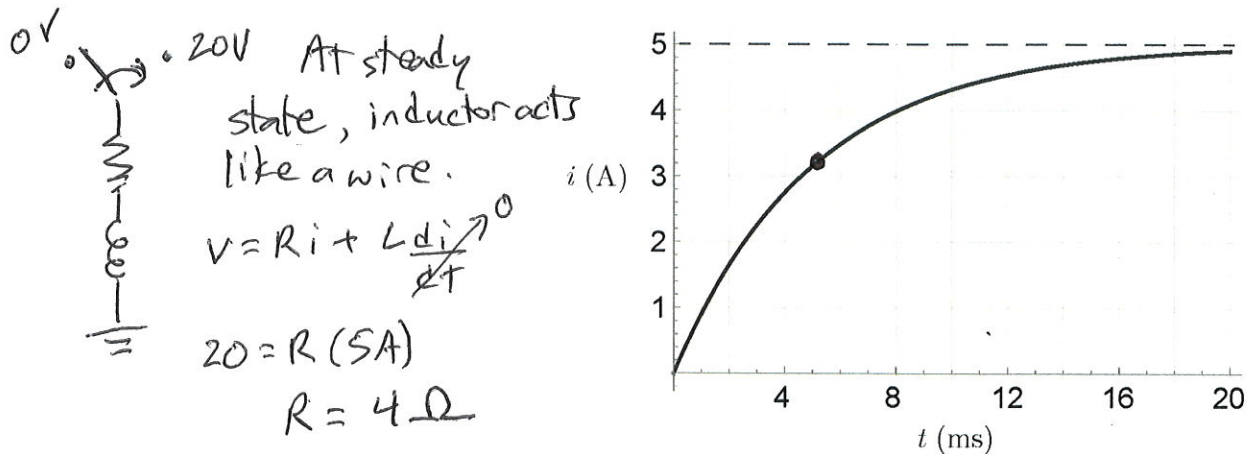 0V
20V
At steady
state, inductor acts
like a wire.
V = Ri + L di/dt 0
20 = R (5A)
R = 4 Ω
i (A)
5
4
3
2
1
4 8 12 16 20
t (ms)